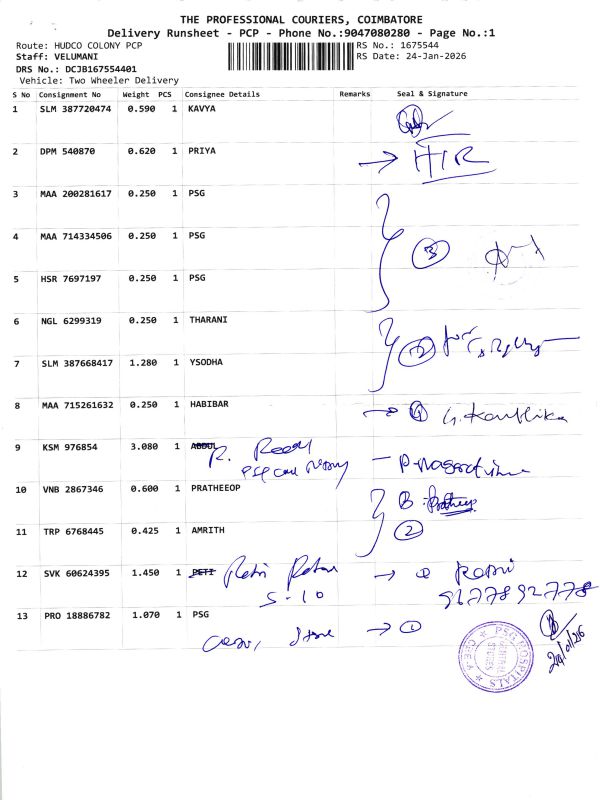 THE PROFESSIONAL COURIERS, COIMBATORE
Delivery Runsheet - PCP - Phone No.:9047080280 - Page No.:1
Route: HUDCO COLONY PCP
RS No.: 1675544
Staff: VELUMANI
RS Date: 24-Jan-2026
DRS No.: DCJB167554401
Vehicle: Two Wheeler Delivery
S No Consignment No Weight PCS Consignee Details Remarks Seal & Signature
1 SLM 387720474 0.590 1 KAVYA
2 DPM 540870 0.620 1 PRIYA
3 MAA 200281617 0.250 1 PSG
4 MAA 714334506 0.250 1 PSG
3
5 HSR 7697197 0.250 1 PSG
6 NGL 6299319 0.250 1 THARANI
2 for
7 SLM 387668417 1.280 1 YSODHA
8 MAA 715261632 0.250 1 HABIBAR
1 G. Kauthika
9 KSM 976854 3.080 1 ABDUL R.
10 VNB 2867346 0.600 1 PRATHEEOP
Pratheep
11 TRP 6768445 0.425 1 AMRITH 2
12 SVK 60624395 1.450 1
S-10
9677892778
13 PRO 18886782 1.070 1 PSG
Store 1
PSG HOSPITALS
CBE-4
GENERAL STORES
24/01/26